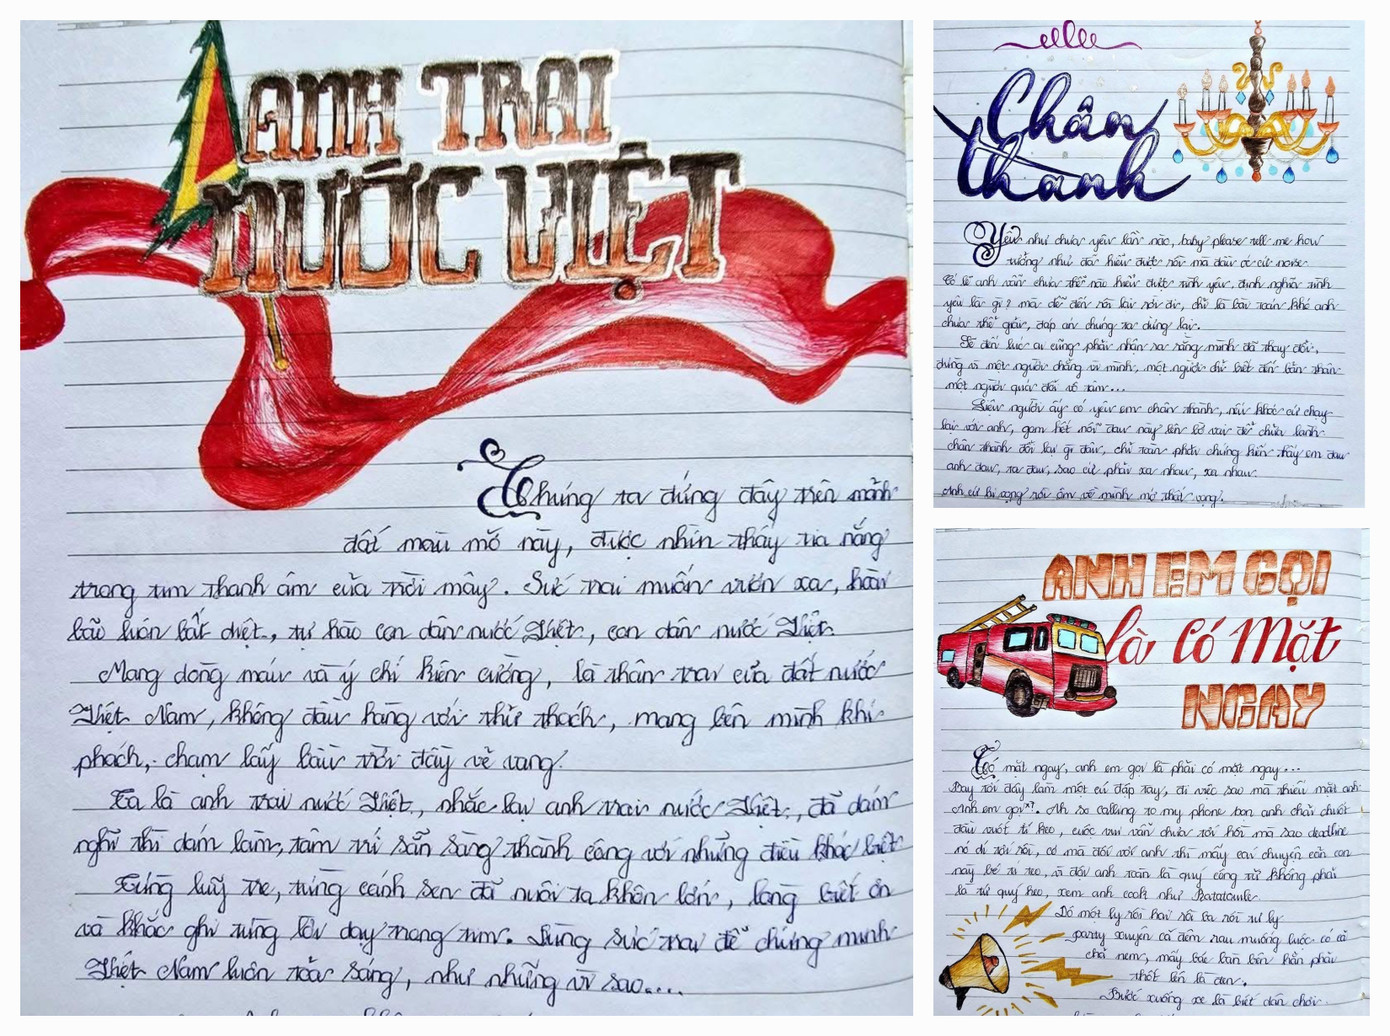 ANH TRAI
NƯỚC VIỆT
Chúng ta đứng đây trên mảnh
đất màu mỡ này, được nhìn thấy tia nắng
trong tim thanh âm của trời mây. Sức trai muốn vươn xa, hoài
bão luôn bất diệt, tự hào con dân nước Việt, con dân nước Việt.
Mang dòng máu và ý chí kiên cường, là thân trai của đất nước
Việt Nam, không đầu hàng với thử thách, mang bên mình khí
phách, chạm lấy bầu trời đầy vẻ vang.
Ta là anh trai nước Việt, nhắc lại anh trai nước Việt, đã dám
nghĩ thì dám làm, tâm trí sẵn sàng thành công với những điều khác biệt
Từng luỹ tre, từng cánh sen đã nuôi ta khôn lớn, lòng biết ơn
và khắc ghi từng lời dạy trong tim. Dùng sức trai để chứng minh
Việt Nam luôn toả sáng, như những vì sao....
Chân
thành
Yêu như chưa yêu lần nào, baby please tell me how
tưởng như đã hiểu được rồi mà đâu có cứ
Có lẽ anh vẫn chưa thể nào hiểu được tình yêu, định nghĩa tình
yêu là gì? mà dễ đến rồi lại rời đi, chỉ là bài toán khó anh
chưa thể giải, đáp án chúng ta dừng lại.
Sẽ đến lúc ai cũng phải nhận ra rằng mình đã thay đổi,
đừng vì một người chẳng vì mình, một người chỉ biết đến bản thân
một người quá đỗi vô tâm...
Liệu người ấy có yêu em chân thành, nếu khóc cứ chạy
lại với anh, gom hết nỗi đau này lên bờ vai để chữa lành
chân thành đổi lại gì đâu, chỉ toàn phải chứng kiến thấy em đau
anh đau, ta đau, sao cứ phải xa nhau, xa nhau.
Anh cứ hi vọng rồi ôm về mình mớ thất vọng.
ANH EM GỌI
là Có Mặt
NGAY
Có mặt ngay, anh em gọi là phải có mặt ngay...
Bay tới đây làm một cú đáp tay, đi việc sao mà thiếu mặt anh
Anh em gọi x?. Ah so calling to my phone bọn anh chải chuốt
đầu vuốt tí keo, cuộc vui vẫn chưa tới hồi mà sao deadline
nó dí tới rồi, có mà đối với anh thì mấy cái chuyện cỏn con
này bé tí teo, vì đội anh toàn là quý công tử không phải
là tứ quý heo, xem anh cook như Ratatouile.
Dô một ly rồi hai rồi ba rồi tư ly
party xuyên cả đêm rau muống luộc có cả
chả nem, mấy bác bàn bên hẳn phải
thốt lên là đen.
Bước xuống xe là biết dân chơi